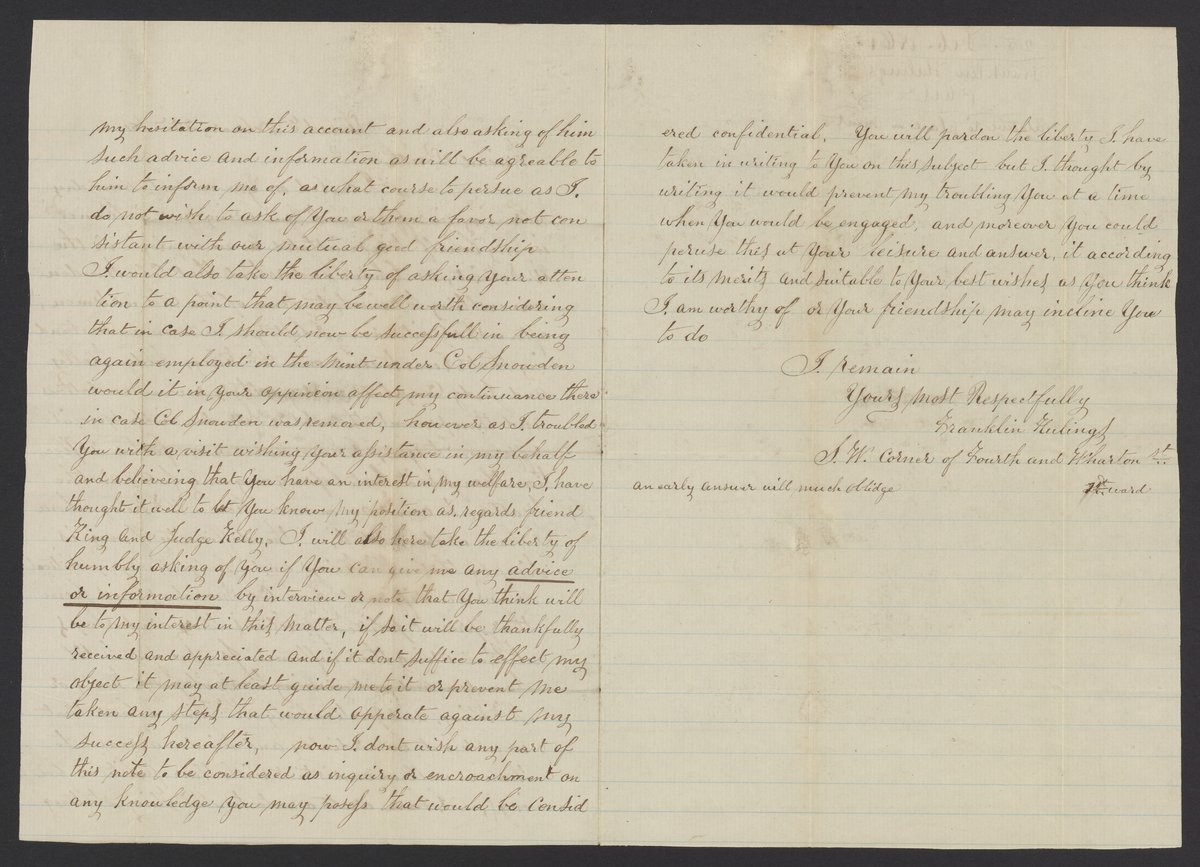 my hesitation on this account and also asking of him
such advice and information as will be agreable to
him to inform me of, as what course to persue as I.
do not wish to ask of You or them a favor not con
sistant with our mutual good friendship
I. would also take the liberty of asking Your atten
tion to a point that may be well worth considering
that in case I. should now be successfull in being
again employed in the mint under Col Snowden
would it in your oppinion affect my continuance there
in case Col Snowden was removed, however as I. troubled
You with a visit wishing your assistance in my behalf
and believeing that You have an interest in my welfare, I. have
thought it well to let You know my position as regards friend
King and Judge Kelly. I. will also here take the liberty of
humbly asking of You if You can give me any advice
or information by interview or note that You think will
be to my interest in this matter, if so it will be thankfully
received and appreciated and if it dont suffice to effect my
object it may at least guide me to it or prevent me
taken any steps that would opperate against my
success hereafter, now I. dont wish any part of
this note to be considered as inquiry or encroachment on
any knowledge you may posess that would be consid
ered confidential. You will pardon the liberty I. have
taken in writing to You on this subject but I. thought by
writing it would prevent my troubling You at a time
when You would be engaged, and moreover You could
peruse this at Your leisure and answer, it according
to its merits and suitable to Your best wishes as You think
I. am worthy of or Your friendship may incline You
to do
I. remain
Yours most Respectfully
Franklin Hulings
S. W. Corner of Fourth and Wharton St.
an early answer will much oblidge
1st ward